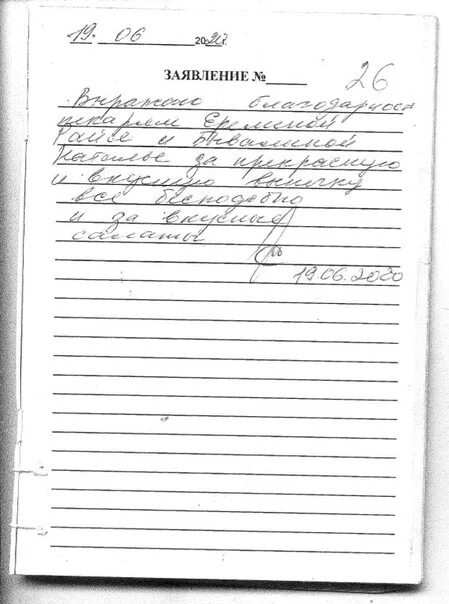 19. 06 2020г.
ЗАЯВЛЕНИЕ №
26
Выражаю благодарность
пекарям Ереминой
Раисе и
Наталье за прекрасную
и вкусную выпичку
все бесподобно
и за вкусные
салаты
19.06.2020